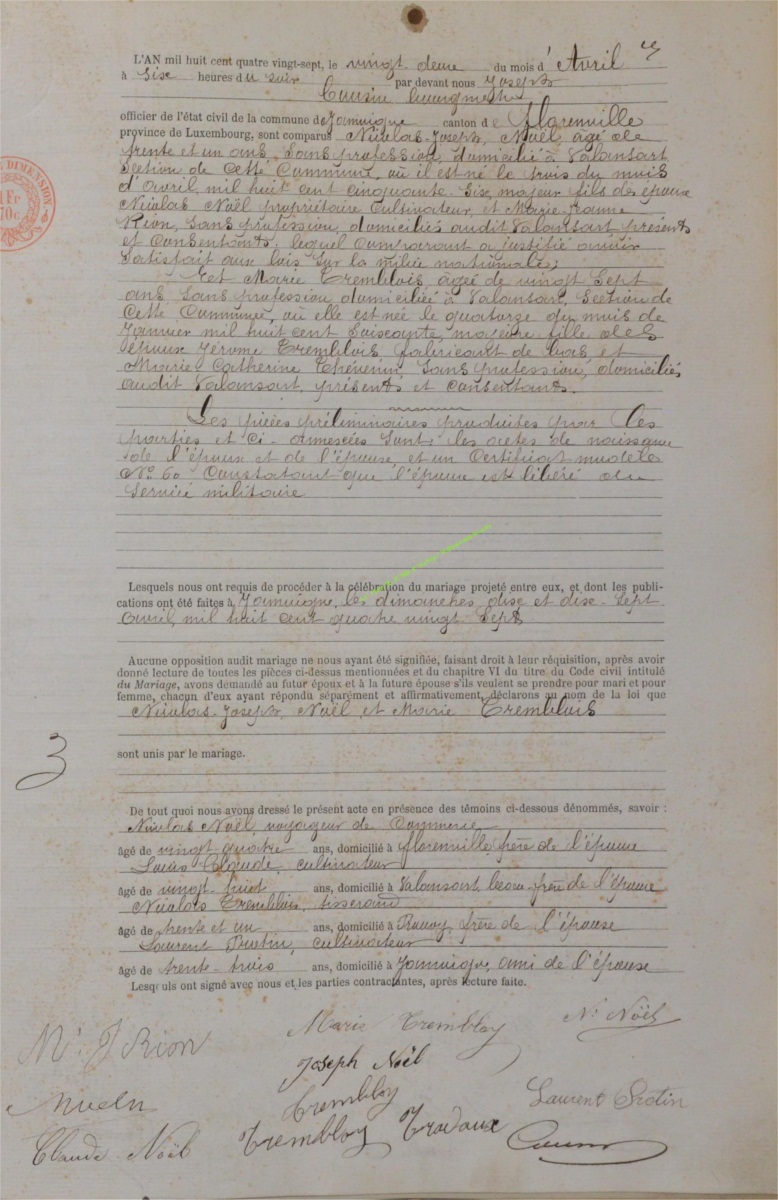 L'AN mil huit cent quatre vingt-sept, le vingt deux du mois d'Avril
à six heures du soir par devant nous Joseph
Cousin bourgmestre
officier de l'état civil de la commune de Jamoigne canton de Florenville
province de Luxembourg, sont comparus Nicolas-Joseph, Noël, âgé de
trente et un ans, Sans profession, domicilié à Valansart
Section de Cette Commune, où il est né le trois du mois
d'avril mil huit cent cinquante-Six, majeur fils des époux
Nicolas Noël propriétaire Cultivateur, et Marie-Jeanne
Rion, sans profession, domiciliés audit Valansart, présents
et Consentants, lequel Comparant a justifié avoir
Satisfait aux lois sur la milice nationale;
Et Marie Tremblois, âgée de vingt Sept
ans, Sans profession domiciliée à Valansart, Section de
Cette Commune, où elle est née le quatorze du mois de
Janvier mil huit cent Soixante, majeure fille des
époux Jérome Tremblois, fabricant de bas, et
Marie Catherine Thévenin, Sans profession, domiciliés
audit Valansart, présents et consentants.
Les pièces préliminaires produites par les
parties et Ci-Annexées Sont: les actes de naissance
de l'époux et de l'épouse, et un Certificat modèle
N° 60 Constatant que l'époux est libéré du
Service militaire
Lesquels nous ont requis de procéder à la célébration du mariage projeté entre eux, et dont les publi-
cations ont été faites à Jamoigne, les dimanches, dix et dix-Sept
Avril mil huit cent quatre vingt Sept.
Aucune opposition audit mariage ne nous ayant été signifiée, faisant droit à leur réquisition, après avoir
donné lecture de toutes les pièces ci-dessus mentionnées et du chapitre VI du titre du Code civil intitulé
du Mariage, avons demandé au futur époux et à la future épouse s'ils veulent se prendre pour mari et pour
femme, chacun d'eux ayant répondu séparément et affirmativement, déclarons au nom de la loi que
Nicolas-Joseph, Noël, et Marie Tremblois
3
sont unis par le mariage.
De tout quoi nous avons dressé le présent acte en présence des témoins ci-dessous dénommés, savoir :
Nicolas Noël, voyageur de Commerce
âgé de vingt quatre ans, domicilié à florenville, frère de l'époux
Louis Claude, cultivateur
âgé de vingt-huit ans, domicilié à Valansart beau-frère de l'époux
Nicolas Tremblois, tisserand
âgé de trente et un ans, domicilié à frère de l'épouse
Laurent cultivateur
âgé de trente-trois ans, domicilié à Jamoigne, ami de l'épouse
Lesquels ont signé avec nous et les parties contractantes, après lecture faite.
Marie Trembloy N. Noël
M. J Rion
Joseph Noël
Trembloy Laurent
Claude Noël Trembloy